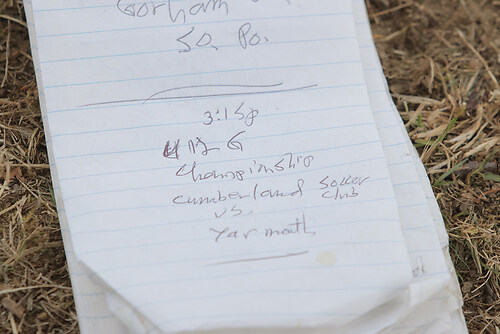 Gorham
So. Po.
3:15p
U12 G
Championship
Cumberland Soccer
club
vs.
Yarmouth